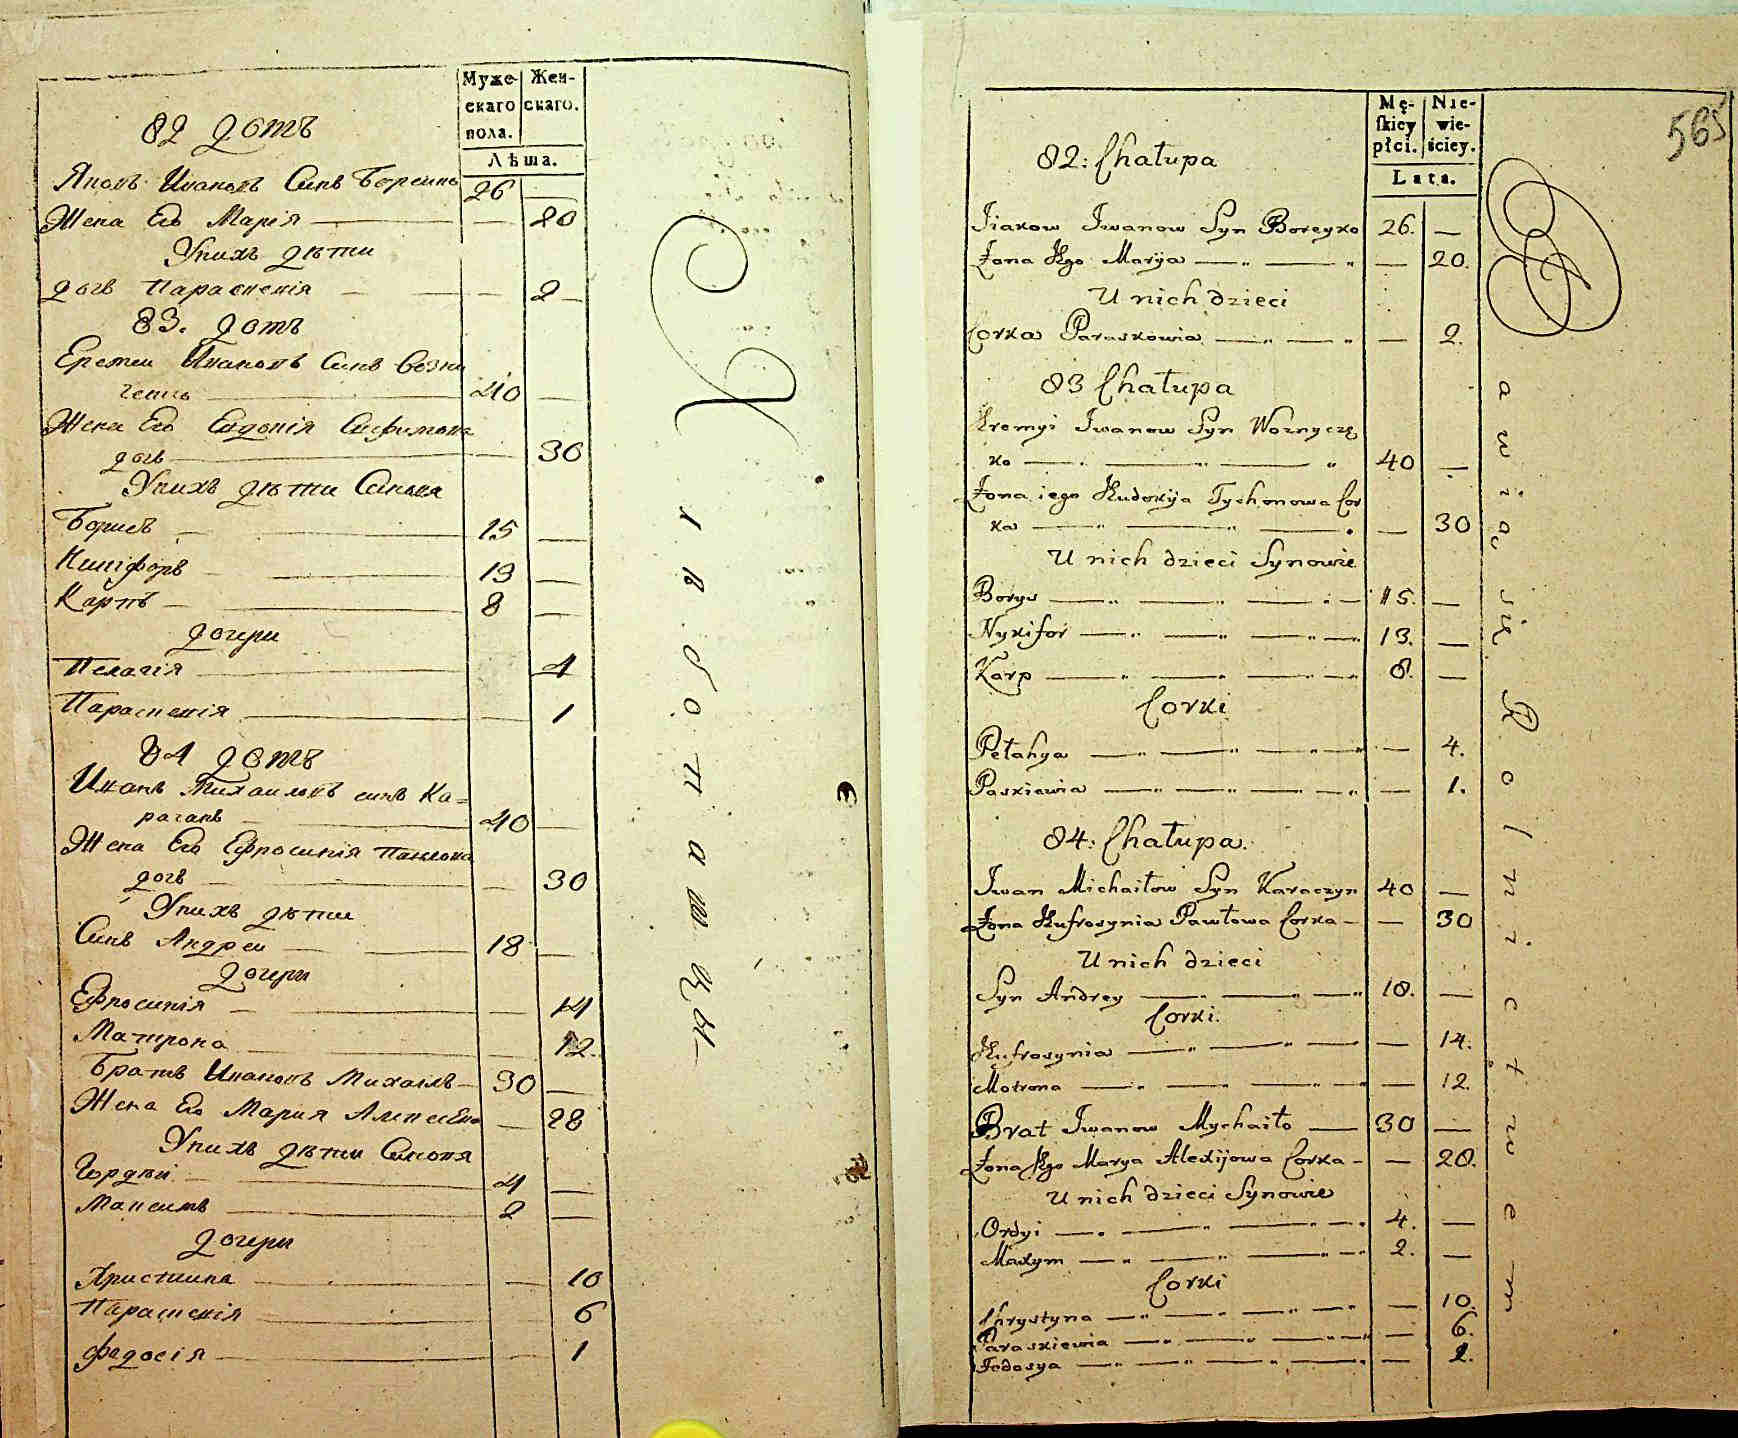 Муже-
скаго
пола.
Жен-
скаго.
Лѣта.
82 домъ
Яковъ Ивановъ Синъ Борейко 26 —
Жена Его Марія — — 20
У нихъ дѣти
дочь Параскевія — — 2
83. домъ
Еремеи Ивановъ Синъ Возни
ченко — 40 —
Жена Его Евдокія
дочь — — 30
У нихъ дѣти Синовя
Борисъ — 15 —
Никифоръ — 13 —
Карпъ — 8 —
дочери
Пелагія — 4
Параскевія — — 1
84 домъ
Иванъ Михаиловъ синъ Ка=
рачанъ — 40 —
Жена Его Ефросинія Павлова
дочь — — 30
У нихъ дѣти
Синъ Андреи — 18 —
Дочери
Ефросинія — — 14
Матрона — — 12.
Братъ Ивановъ Михаилъ — 30 —
Жена Его Мария — 28
У нихъ дѣти Синовя
Гордѣй — 4 —
Максимъ — 2 —
дочери
Христина — — 10
Параскевія — 6
Федосія — — 1
Хлѣбопашцы
565
Mę-
skiey
płci.
Nie-
wie-
ściey.
Lata.
82: Chałupa
Jiakow Iwanow Syn Boreyko 26. —
Żona Jego Marija — „ — „ — 20.
U nich dzieci
Corka Paraskowia — „ — „ — 2.
83 Chałupa
Jeremyi Iwanow Syn Woznyczę
ko — „ — „ — „ 40 —
Żona iego Eudokija Tychonowa Cor
ka — „ — „ — 30
U nich dzieci Synowie
Borys — „ — „ — 15. —
Nykifor — „ — „ — „ — 13. —
Karp — „ — „ — „ — 8. —
Corki
Pełahya — „ — „ — „ — 4.
Paskiewia — „ — „ — „ — 1.
84: Chałupa.
Iwan Michaiłow Syn Karaczyn 40 —
Żona Eufrosynia Pawłowa Corka — — 30
U nich dzieci
Syn Andrey — „ — „ — „ 18. —
Corki.
Eufrosynia — „ — „ — — 14.
Motrona — „ — „ — „ — 12.
Brat Iwanow Mychaiło — 30 —
Żona Jego Marya Alexijowa Corka — — 28.
U nich dzieci Synowie
Ordyi — „ — „ — „ — 4. —
Maxym — „ — „ — „ — 2. —
Corki
Chrystyna — „ — „ — „ — — 10.
Paraskiewia — „ — „ — „ — — 6.
Fedosya — „ — „ — „ — — 2.
Bawią się Rolnictwem